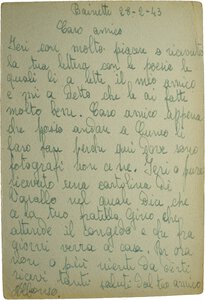 Bainetti 28-2-43
Caro amico
Ieri con molto piacere o ricevuto
la tua lettera con le poesie le
quali li a lete il mio amico
e mi a detto che le ai fatte
molto bene. Caro amico appena
che posso andare a Cuneo li
faro fare perchè qui dove sono
fotografi non ce ne. Ieri o pure
ricevuto una cartolina di
nel quale dice che
ce la tuo fratello Gino, che
attende il congedo e che fra
giorni verra a casa. Per ora
non o più niente da dirti
ricevi tanti saluti dal tuo amico
Alfonso